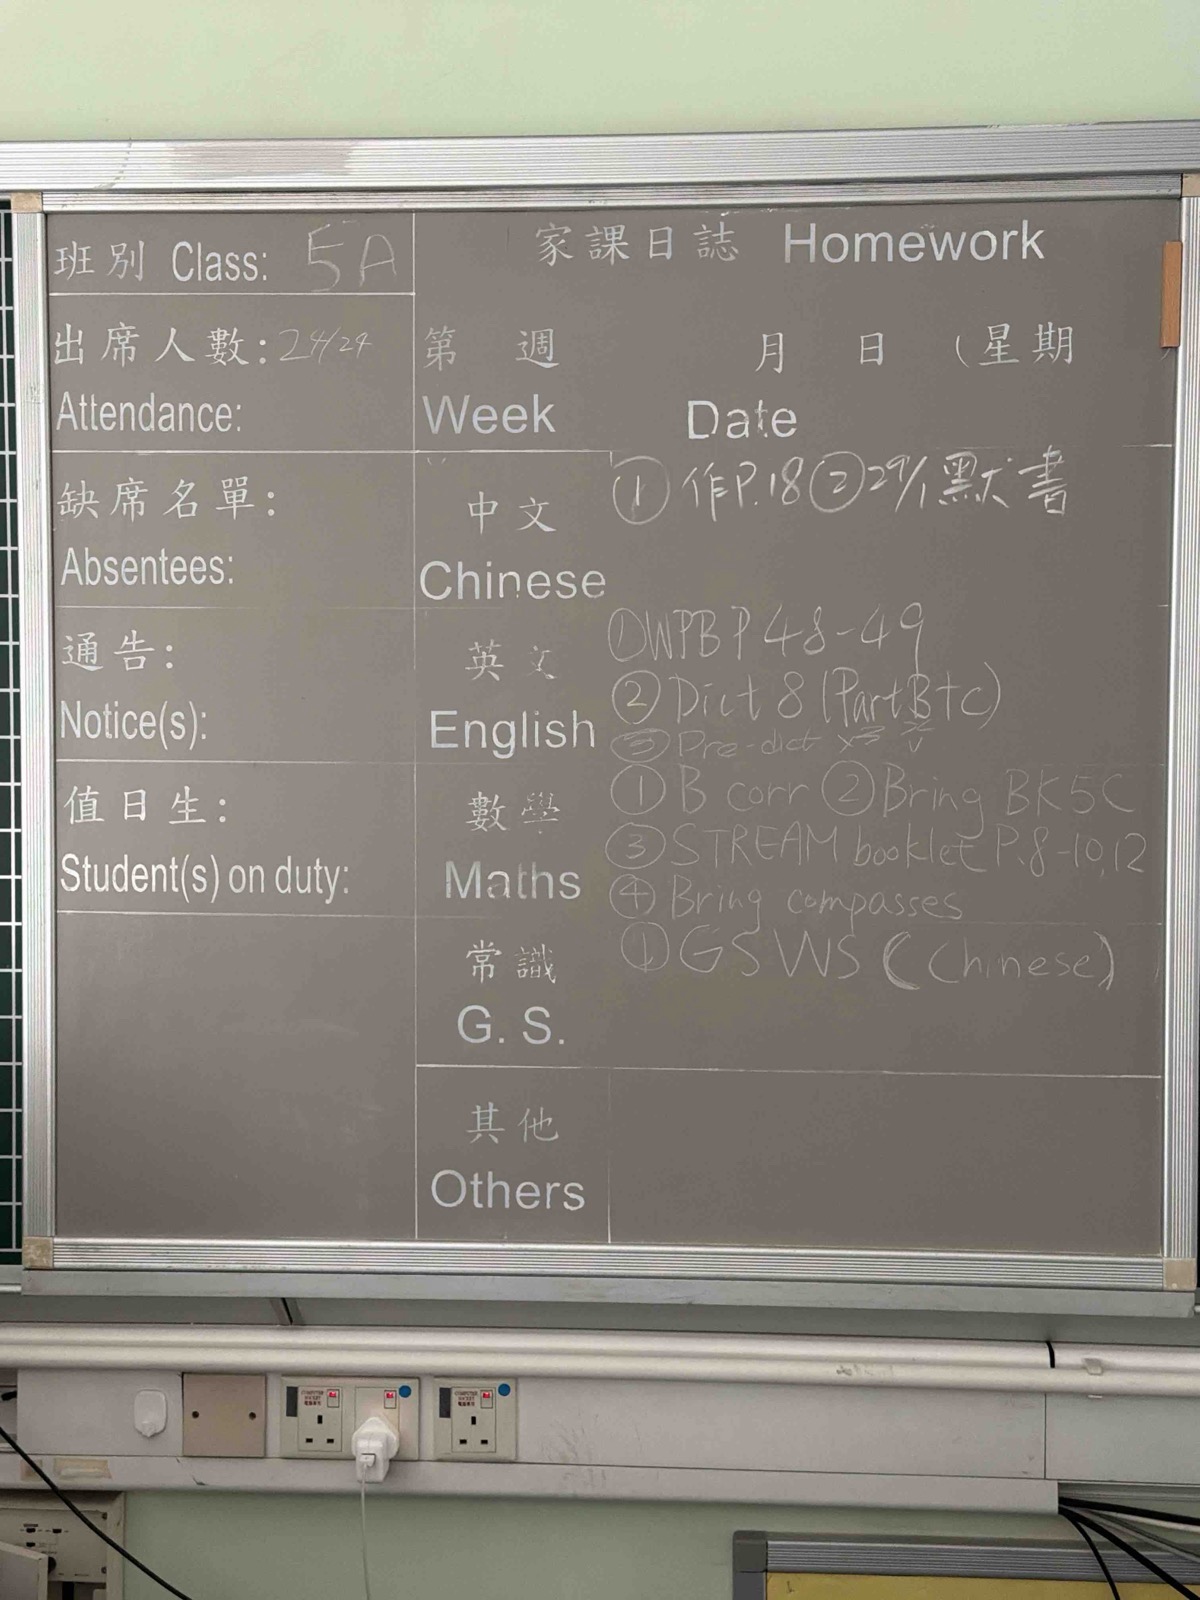 班別 Class: 5A
家課日誌 Homework
出席人數: 24/24
Attendance:
第 週 月 日 (星期
Week Date
缺席名單:
Absentees:
中文
Chinese
① 作P.18 ② 29/1 默書
通告:
Notice(s):
英文
English
① WPB P 48-49
② Dict 8 (Part B+C)
③ Pre-dict x3
值日生:
Student(s) on duty:
數學
Maths
① B corr ② Bring BK 5C
③ STREAM booklet P.8-10,12
④ Bring compasses
常識
G. S.
① GS WS (Chinese)
其他
Others